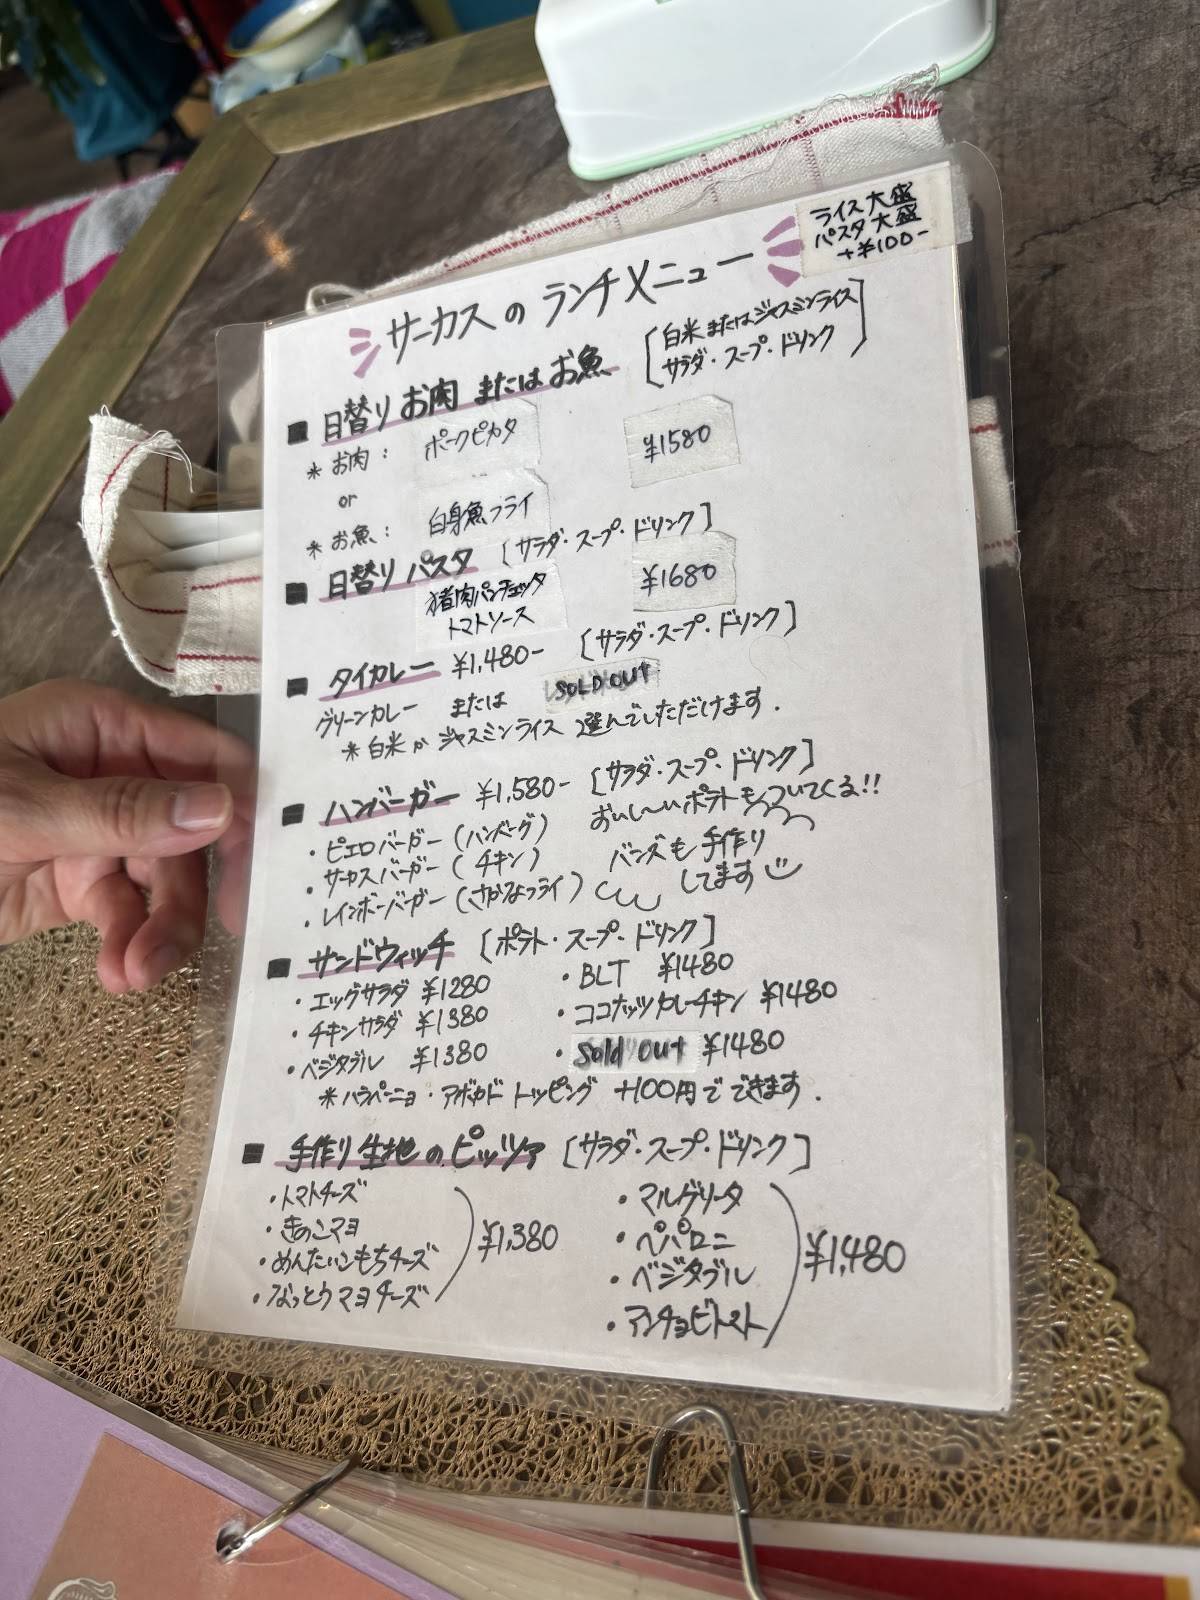 ライス大盛
パスタ大盛
+¥100-
サーカスの ランチメニュー
■ 日替り お肉 または お魚
[白米 または ジャスミンライス
サラダ・スープ・ドリンク]
* お肉 : ポークピカタ ¥1580
or
* お魚 : 白身魚フライ
■ 日替り パスタ [サラダ・スープ・ドリンク]
猪肉パンチェッタ ¥1680
トマトソース
■ タイカレー ¥1,480- [サラダ・スープ・ドリンク]
グリーンカレー または SOLD OUT
* 白米 か ジャスミンライス 選んでいただけます.
■ ハンバーガー ¥1,580- [サラダ・スープ・ドリンク]
・ピエロバーガー (ハンバーグ) おいし〜いポテトもついてくる!!
・サーカスバーガー (チキン) バンズも 手作り
・レインボーバーガー (さかなフライ) してます
■ サンドウィッチ [ポテト・スープ・ドリンク]
・エッグサラダ ¥1280 ・BLT ¥1480
・チキンサラダ ¥1380 ・ココナッツカレーチキン ¥1480
・ベジタブル ¥1380 ・Sold out ¥1480
* ハラペーニョ・アボカド トッピング +100円で できます.
■ 手作り 生地 の ピッツァ [サラダ・スープ・ドリンク]
・トマトチーズ ・マルゲリータ
・きのこマヨ ¥1,380 ・ペパロニ ¥1,480
・めんたいこもちチーズ ・ベジタブル
・なっとうマヨチーズ ・アンチョビトマト